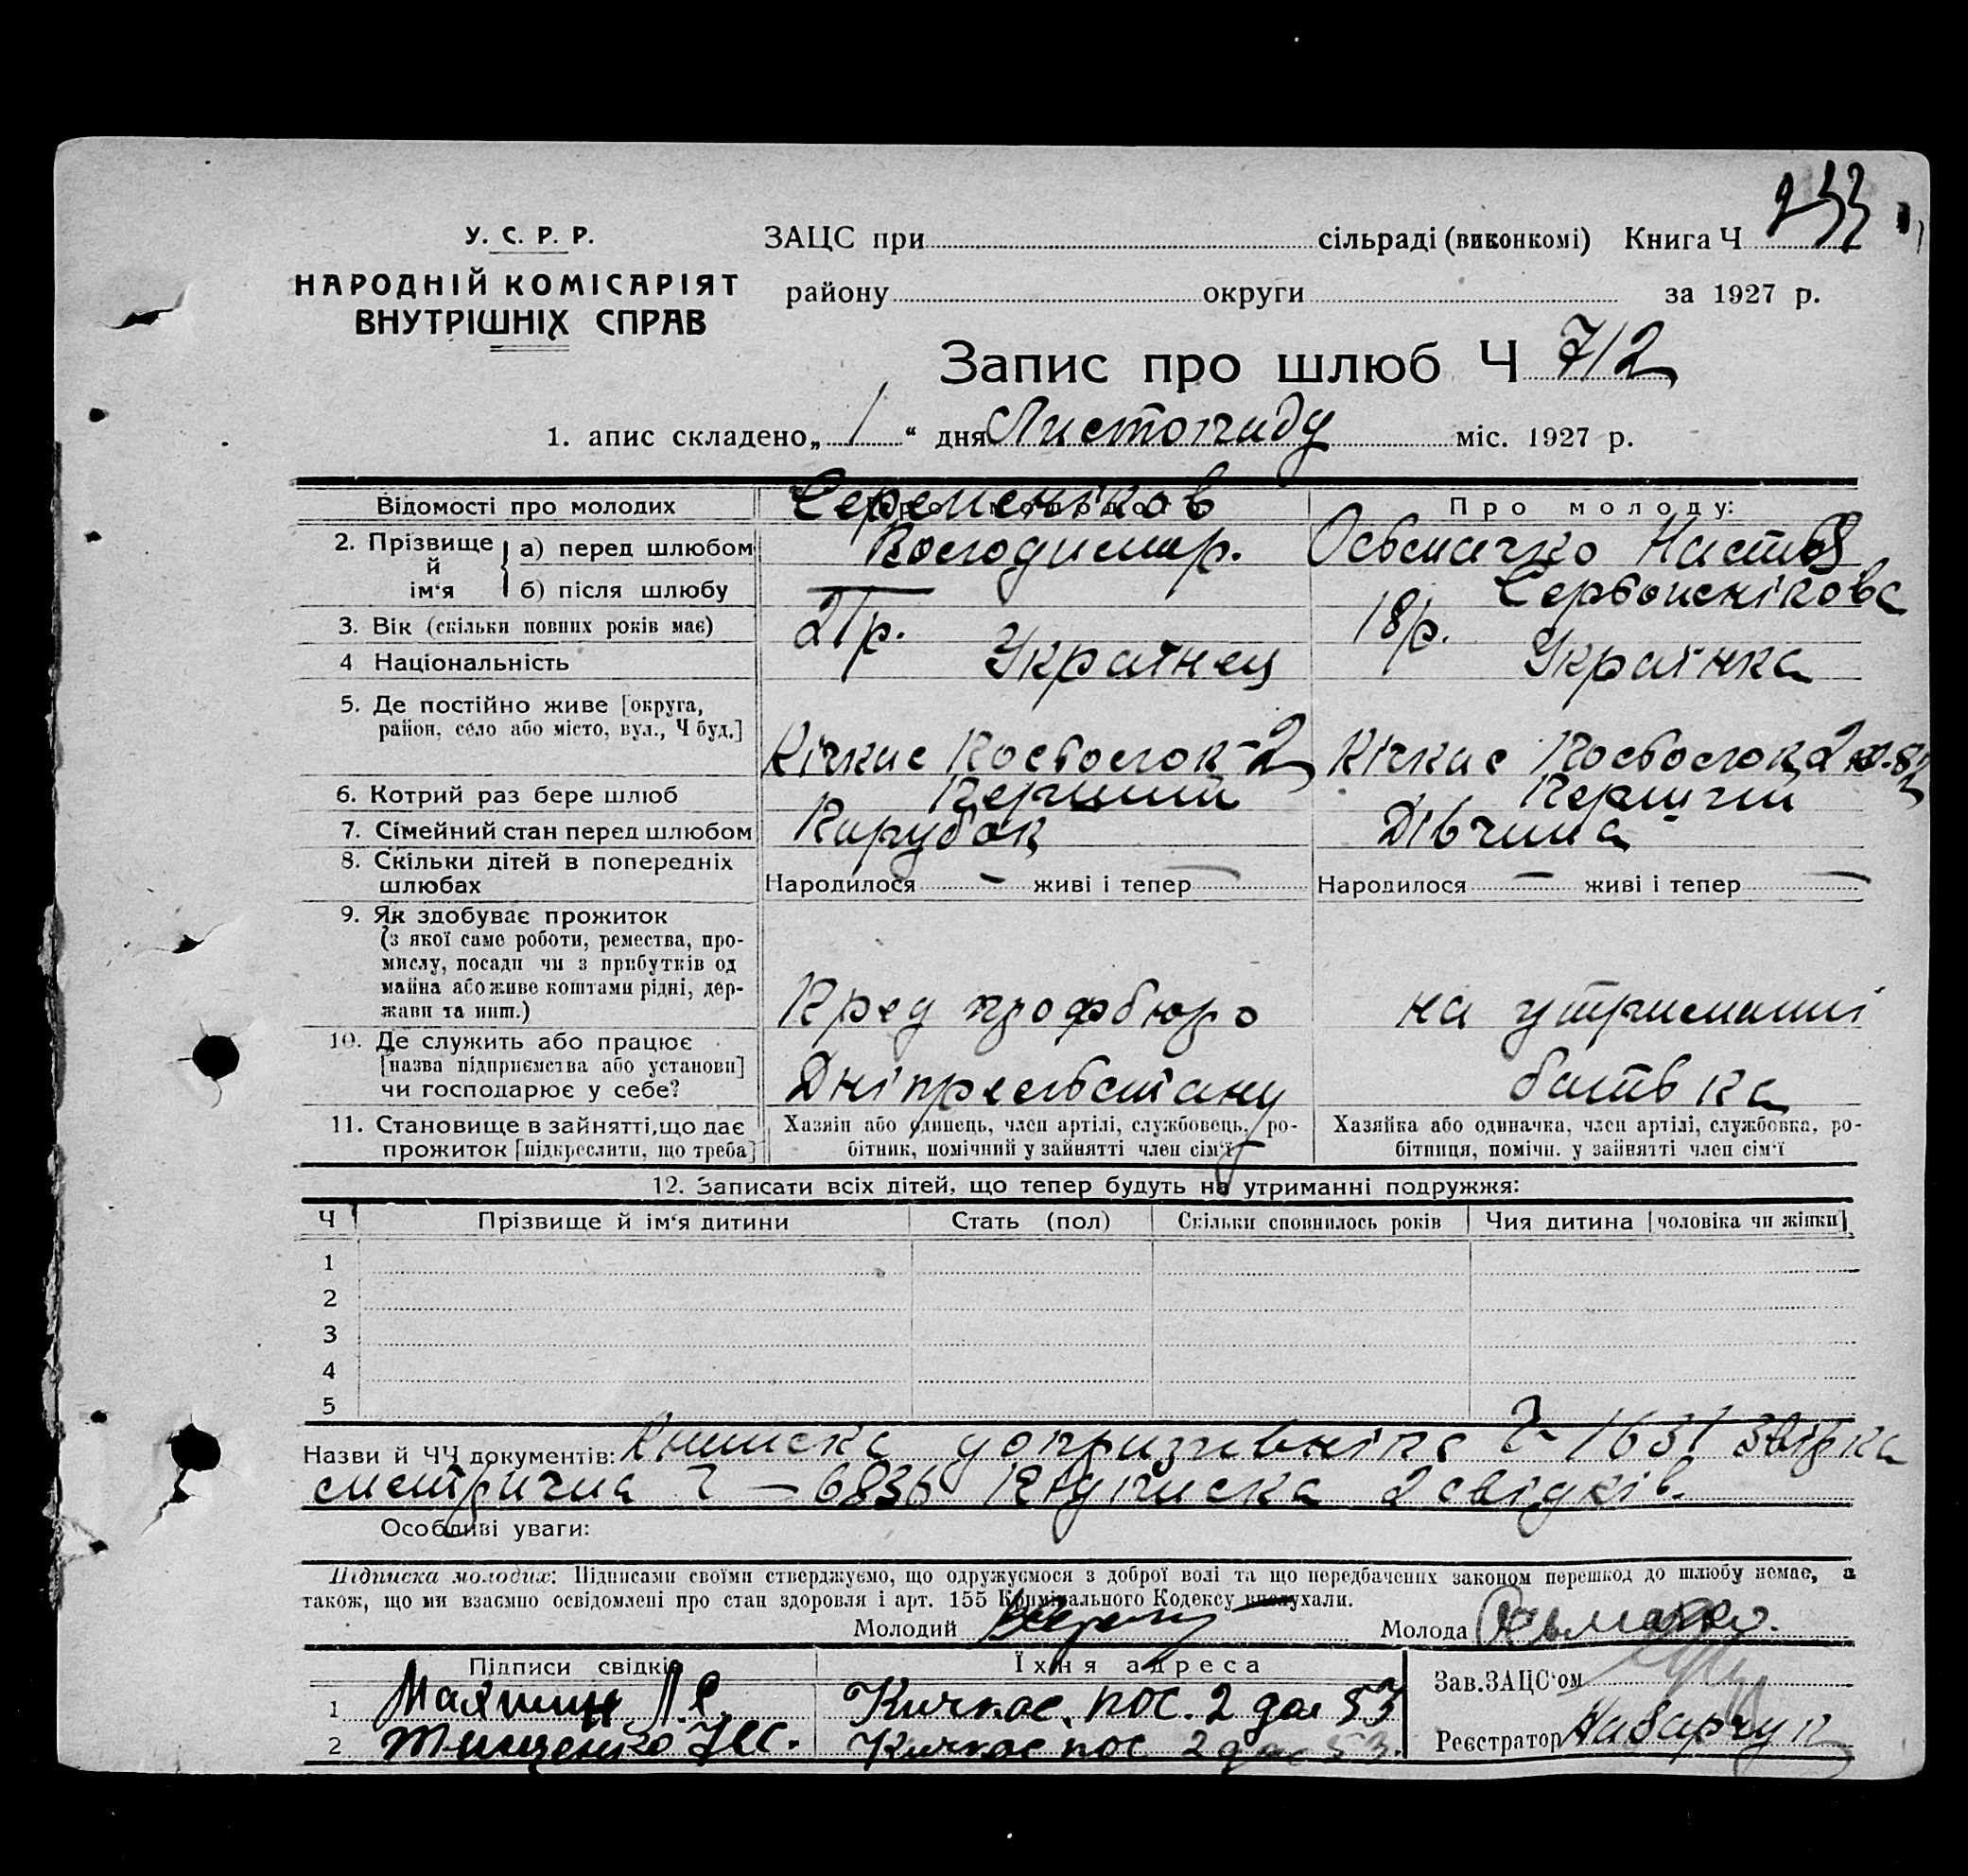 233
У. С. Р. Р.
НАРОДНІЙ КОМІСАРІЯТ
ВНУТРІШНІХ СПРАВ
ЗАЦС при сільраді (виконкомі) Книга Ч
району округи за 1927 р.
Запис про шлюб Ч 712
1. апис складено „ 1 “ дня Листопаду міс. 1927 р.
Відомості про молодих
Про молоду:
2. Прізвище й ім‘я
а) перед шлюбом
Володимир. Осьмачко Настя
б) після шлюбу
3. Вік (скільки повних років має) 21 р. 18 р.
4 Національність Українец Українка
5. Де постійно живе [округа,
район, село або місто, вул., Ч буд.]
Кічкас Посьолок-2 Кічкас Посьолок 2
6. Котрий раз бере шлюб Перший Перший
7. Сімейний стан перед шлюбом Парубок Дівчина
8. Скільки дітей в попередніх
шлюбах
Народилося – живі і тепер – Народилося – живі і тепер –
9. Як здобуває прожиток
(з якої саме роботи, ремества, про-
мислу, посади чи з прибутків од
майна або живе коштами рідні, дер-
жави та инш.)
Пред профбюро на утриманні
10. Де служить або працює
[назва підприємства або установи]
чи господарює у себе?
батька
11. Становище в зайнятті, що дає
прожиток [підкреслити, що треба]
Хазяїн або одинець, член артілі, службовець, ро-
бітник, помічний у зайнятті член сім‘ї
Хазяйка або одиначка, член артілі, службовка, ро-
бітниця, помічн. у зайнятті член сім‘ї
12. Записати всіх дітей, що тепер будуть на утриманні подружжя:
Ч Прізвище й ім‘я дитини Стать (пол) Скільки сповнилось років Чия дитина [чоловіка чи жінки]
1
2
3
4
5
Назви й ЧЧ документів: допризивніка Ч 1631
метрична Ч – 6836 Підписка 2 свідків.
Особливі уваги:
Підписка молодих: Підписами своїми стверджуємо, що одружуємося з доброї волі та що передбачених законом перешкод до шлюбу немає, а
також, що ми взаємно освідомлені про стан здоровля і арт. 155 Кримінального Кодексу вислухали.
Молодий Молода
Підписи свідків Їхня адреса
Зав. ЗАЦС‘ом
1 Кичкас. пос. 2 53
2 Тищенко Кичкас пос 2 53.
Реєстратор